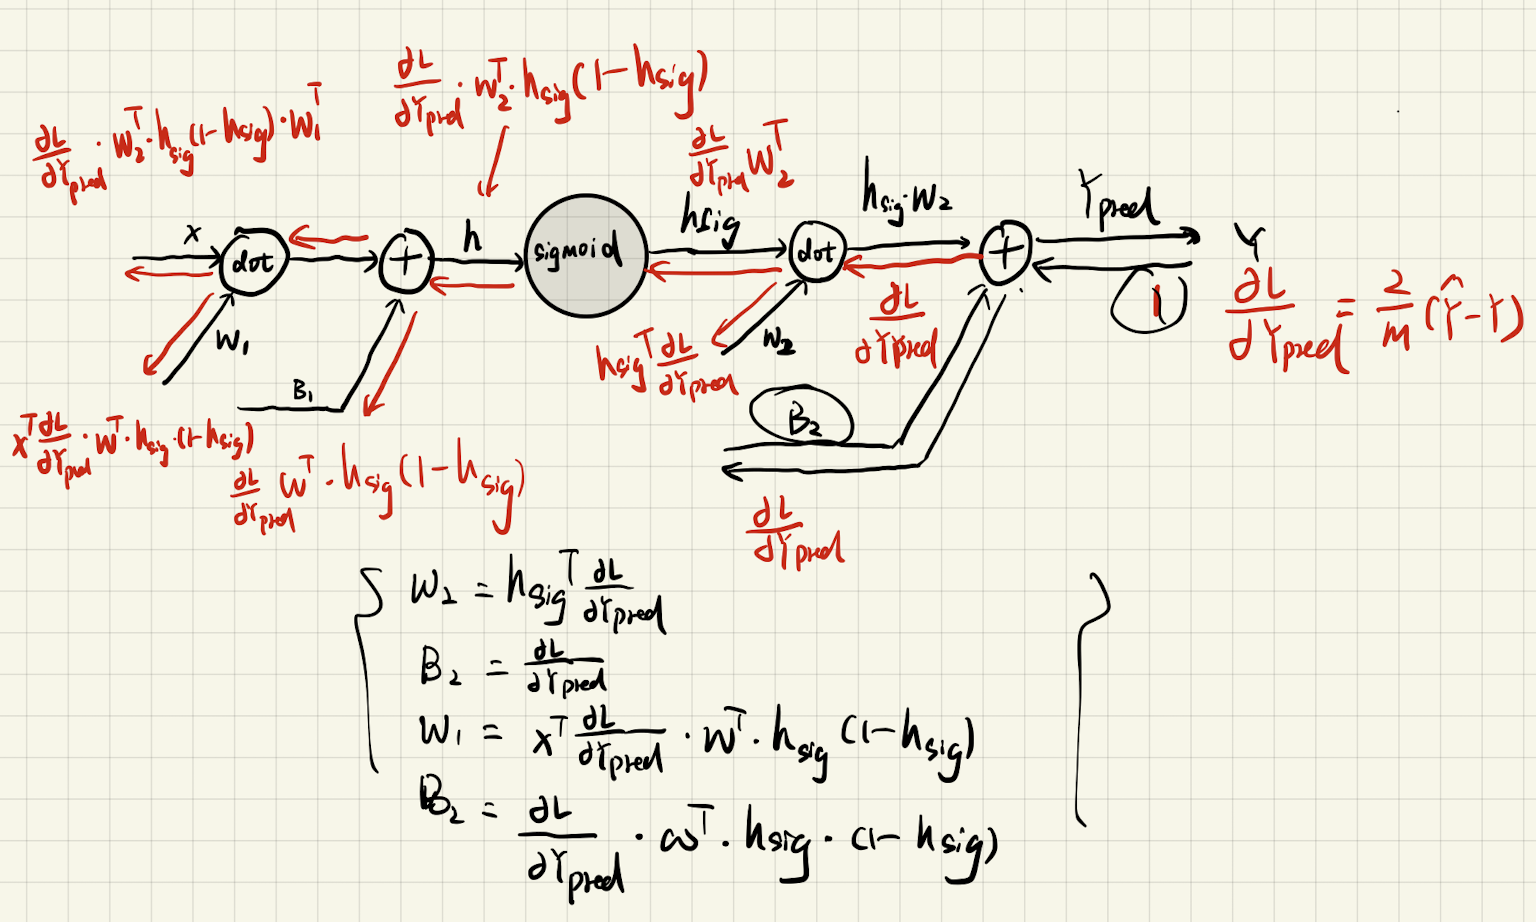 ∂L/∂Ypred · W₂ᵀ · hsig(1-hsig) · W₁ᵀ
∂L/∂Ypred · W₂ᵀ · hsig(1-hsig)
∂L/∂Ypred W₂ᵀ
x
dot
+
h
sigmoid
hsig
dot
hsig·W₂
+
Ypred
Y
1
∂L/∂Ypred = 2/m (Ŷ-Y)
W₁
B₁
hsigᵀ ∂L/∂Ypred
W₂
∂L/∂Ypred
B₂
xᵀ ∂L/∂Ypred · Wᵀ · hsig · (1-hsig)
∂L/∂Ypred Wᵀ · hsig(1-hsig)
∂L/∂Ypred
W₂ = hsigᵀ ∂L/∂Ypred
B₂ = ∂L/∂Ypred
W₁ = xᵀ ∂L/∂Ypred · Wᵀ · hsig (1-hsig)
B₂ = ∂L/∂Ypred · ωᵀ · hsig · (1-hsig)